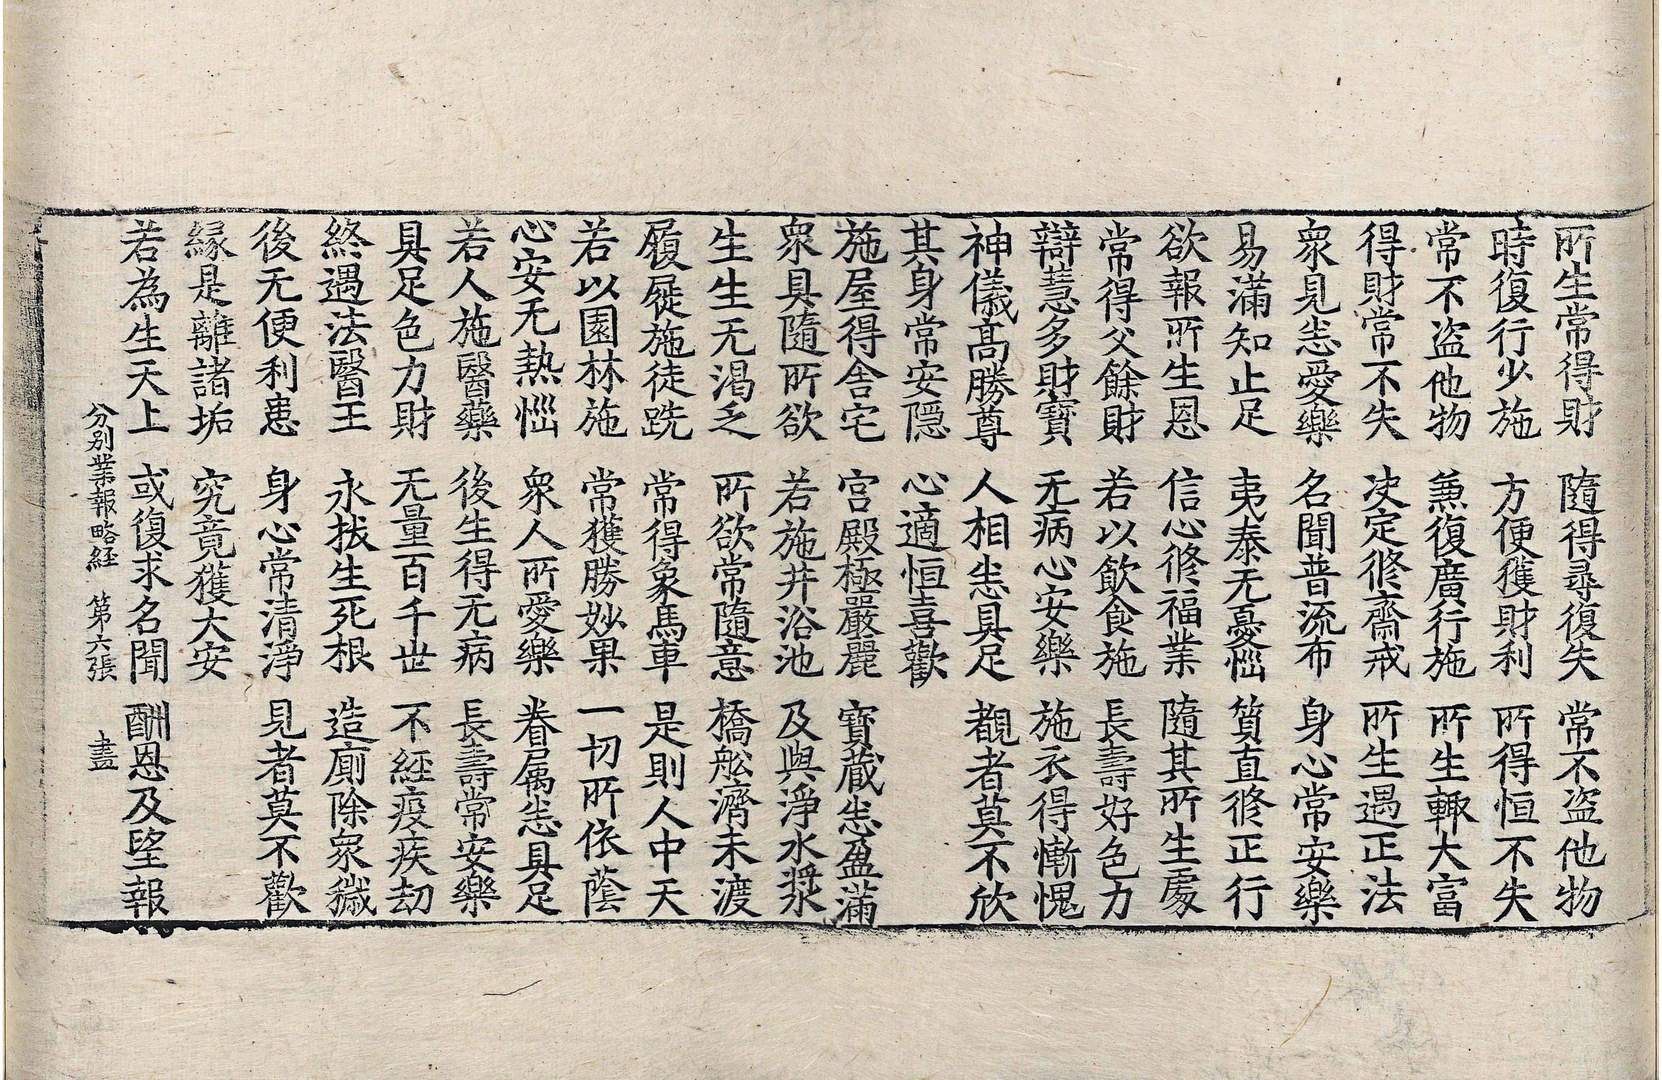 所生常得財　隨得尋復失　常不盜他物
時復行少施　方便獲財利　所得恒不失
常不盜他物　兼復廣行施　所生輙大富
得財常不失　决定修齋戒　所生遇正法
衆見恚愛樂　名聞普流布　身心常安樂
易滿知止足　夷泰无憂惱　質直修正行
欲報所生恩　信心修福業　隨其所生處
常得父餘財　若以飲食施　長壽好色力
辯慧多財寶　无病心安樂　施衣得慚愧
神儀髙勝尊　人相恚具足　覩者莫不欣
其身常安隱　心適恒喜歡
施屋得舍宅　宮殿極嚴麗　寶藏恚盈滿
衆具隨所欲　若施井浴池　及與淨水漿
生生无渴乏　所欲常隨意　橋舩濟未渡
履屣施徒跣　常得象馬車　是則人中天
若以園林施　常獲勝妙果　一切所依蔭
心安无熱惱　衆人所愛樂　眷屬恚具足
若人施醫藥　後生得无病　長壽常安樂
具足色力財　无量百千世　不經疫疾劫
終遇法醫王　永拔生死根　造廁除衆穢
後无便利患　身心常清淨　見者莫不歡
緣是離諸垢　究竟獲大安
若為生天上　或復求名聞　酬恩及望報
分別業報略経　第六張　盡